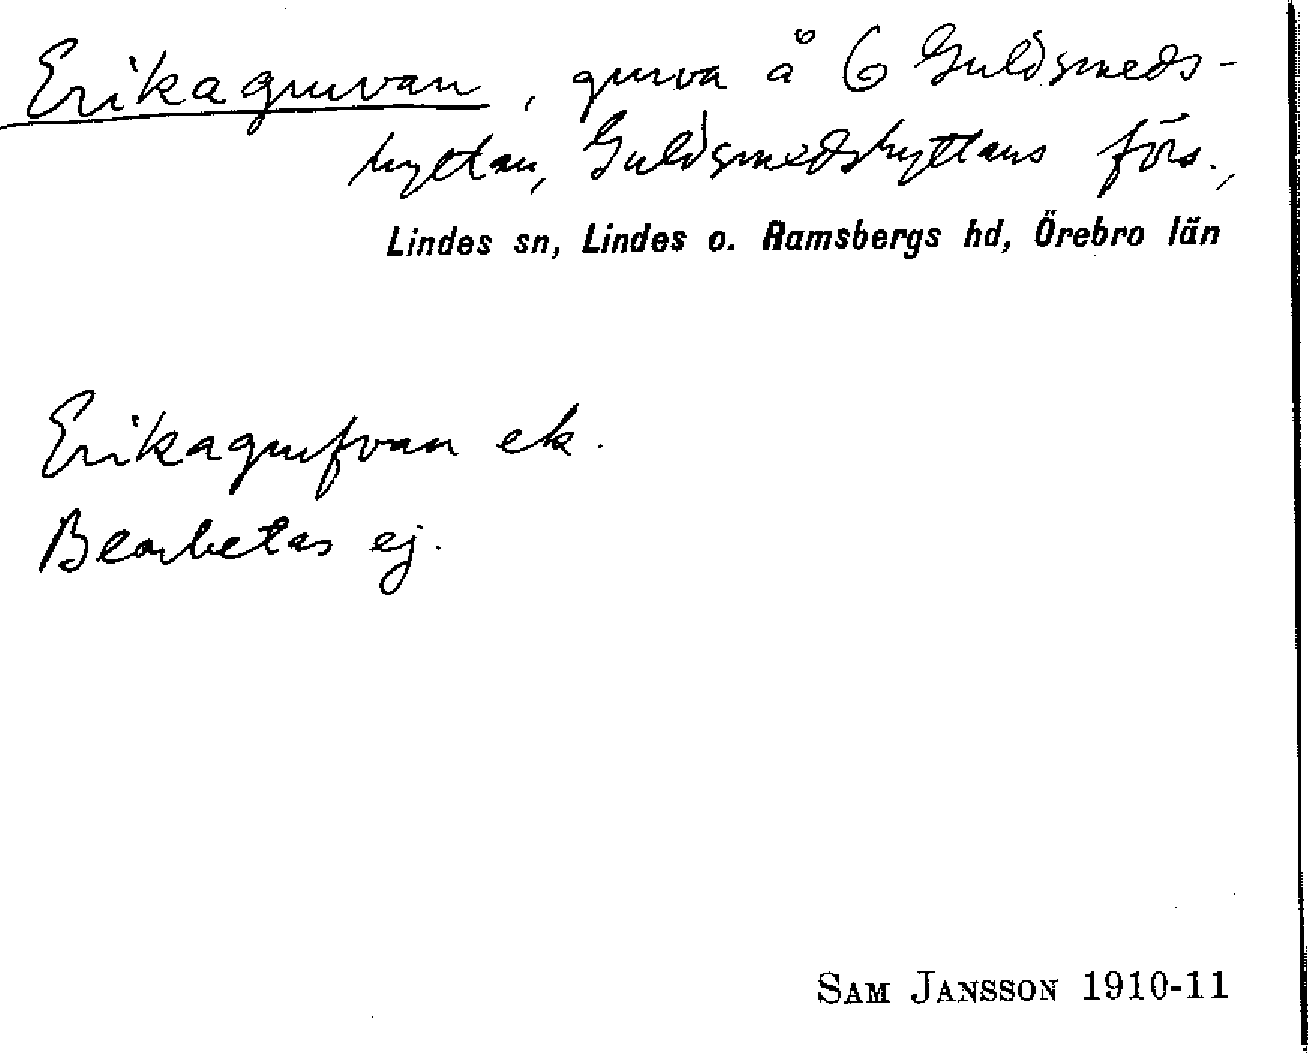 Erikagruvan, gruva å 6 Guldsmeds-
hyttan, Guldsmedshyttans förs.,
Lindes sn, Lindes o. Ramsbergs hd, Örebro län
Erikagrufvan ek.
Bearbetas ej.
SAM JANSSON 1910-11